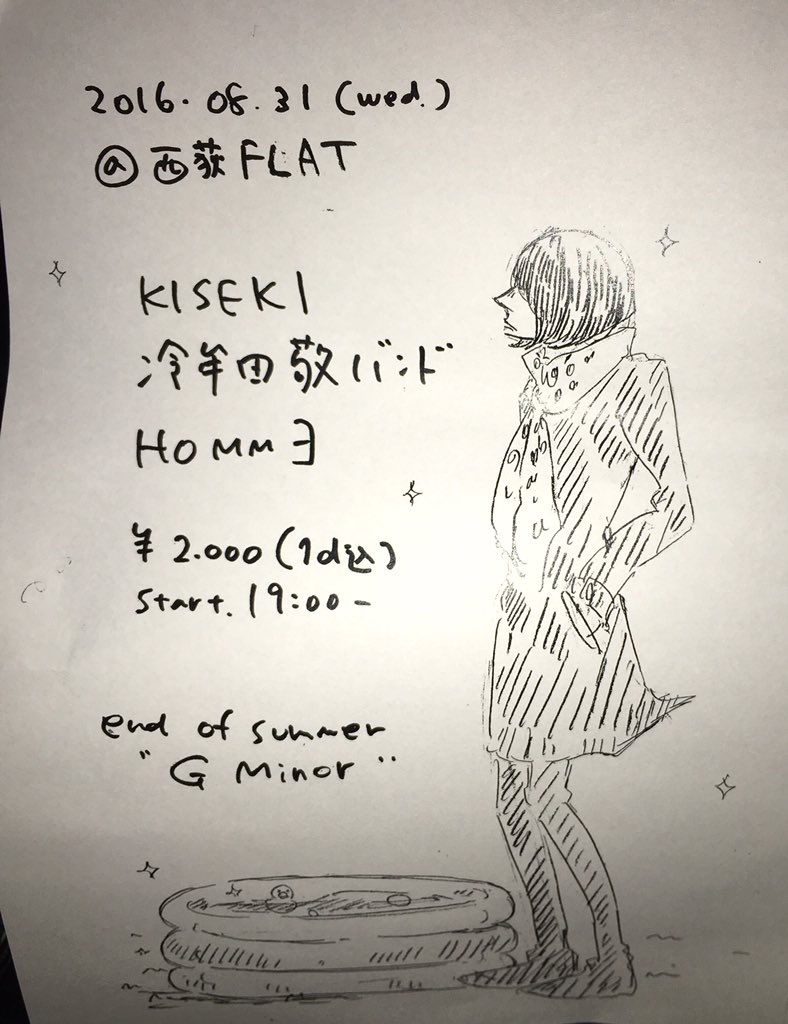 2016.08.31 (wed.)
@西荻FLAT
KISEKI
冷牟田敬バンド
HOMMヨ
¥2.000(1d込)
start.19:00-
end of summer
"G minor"